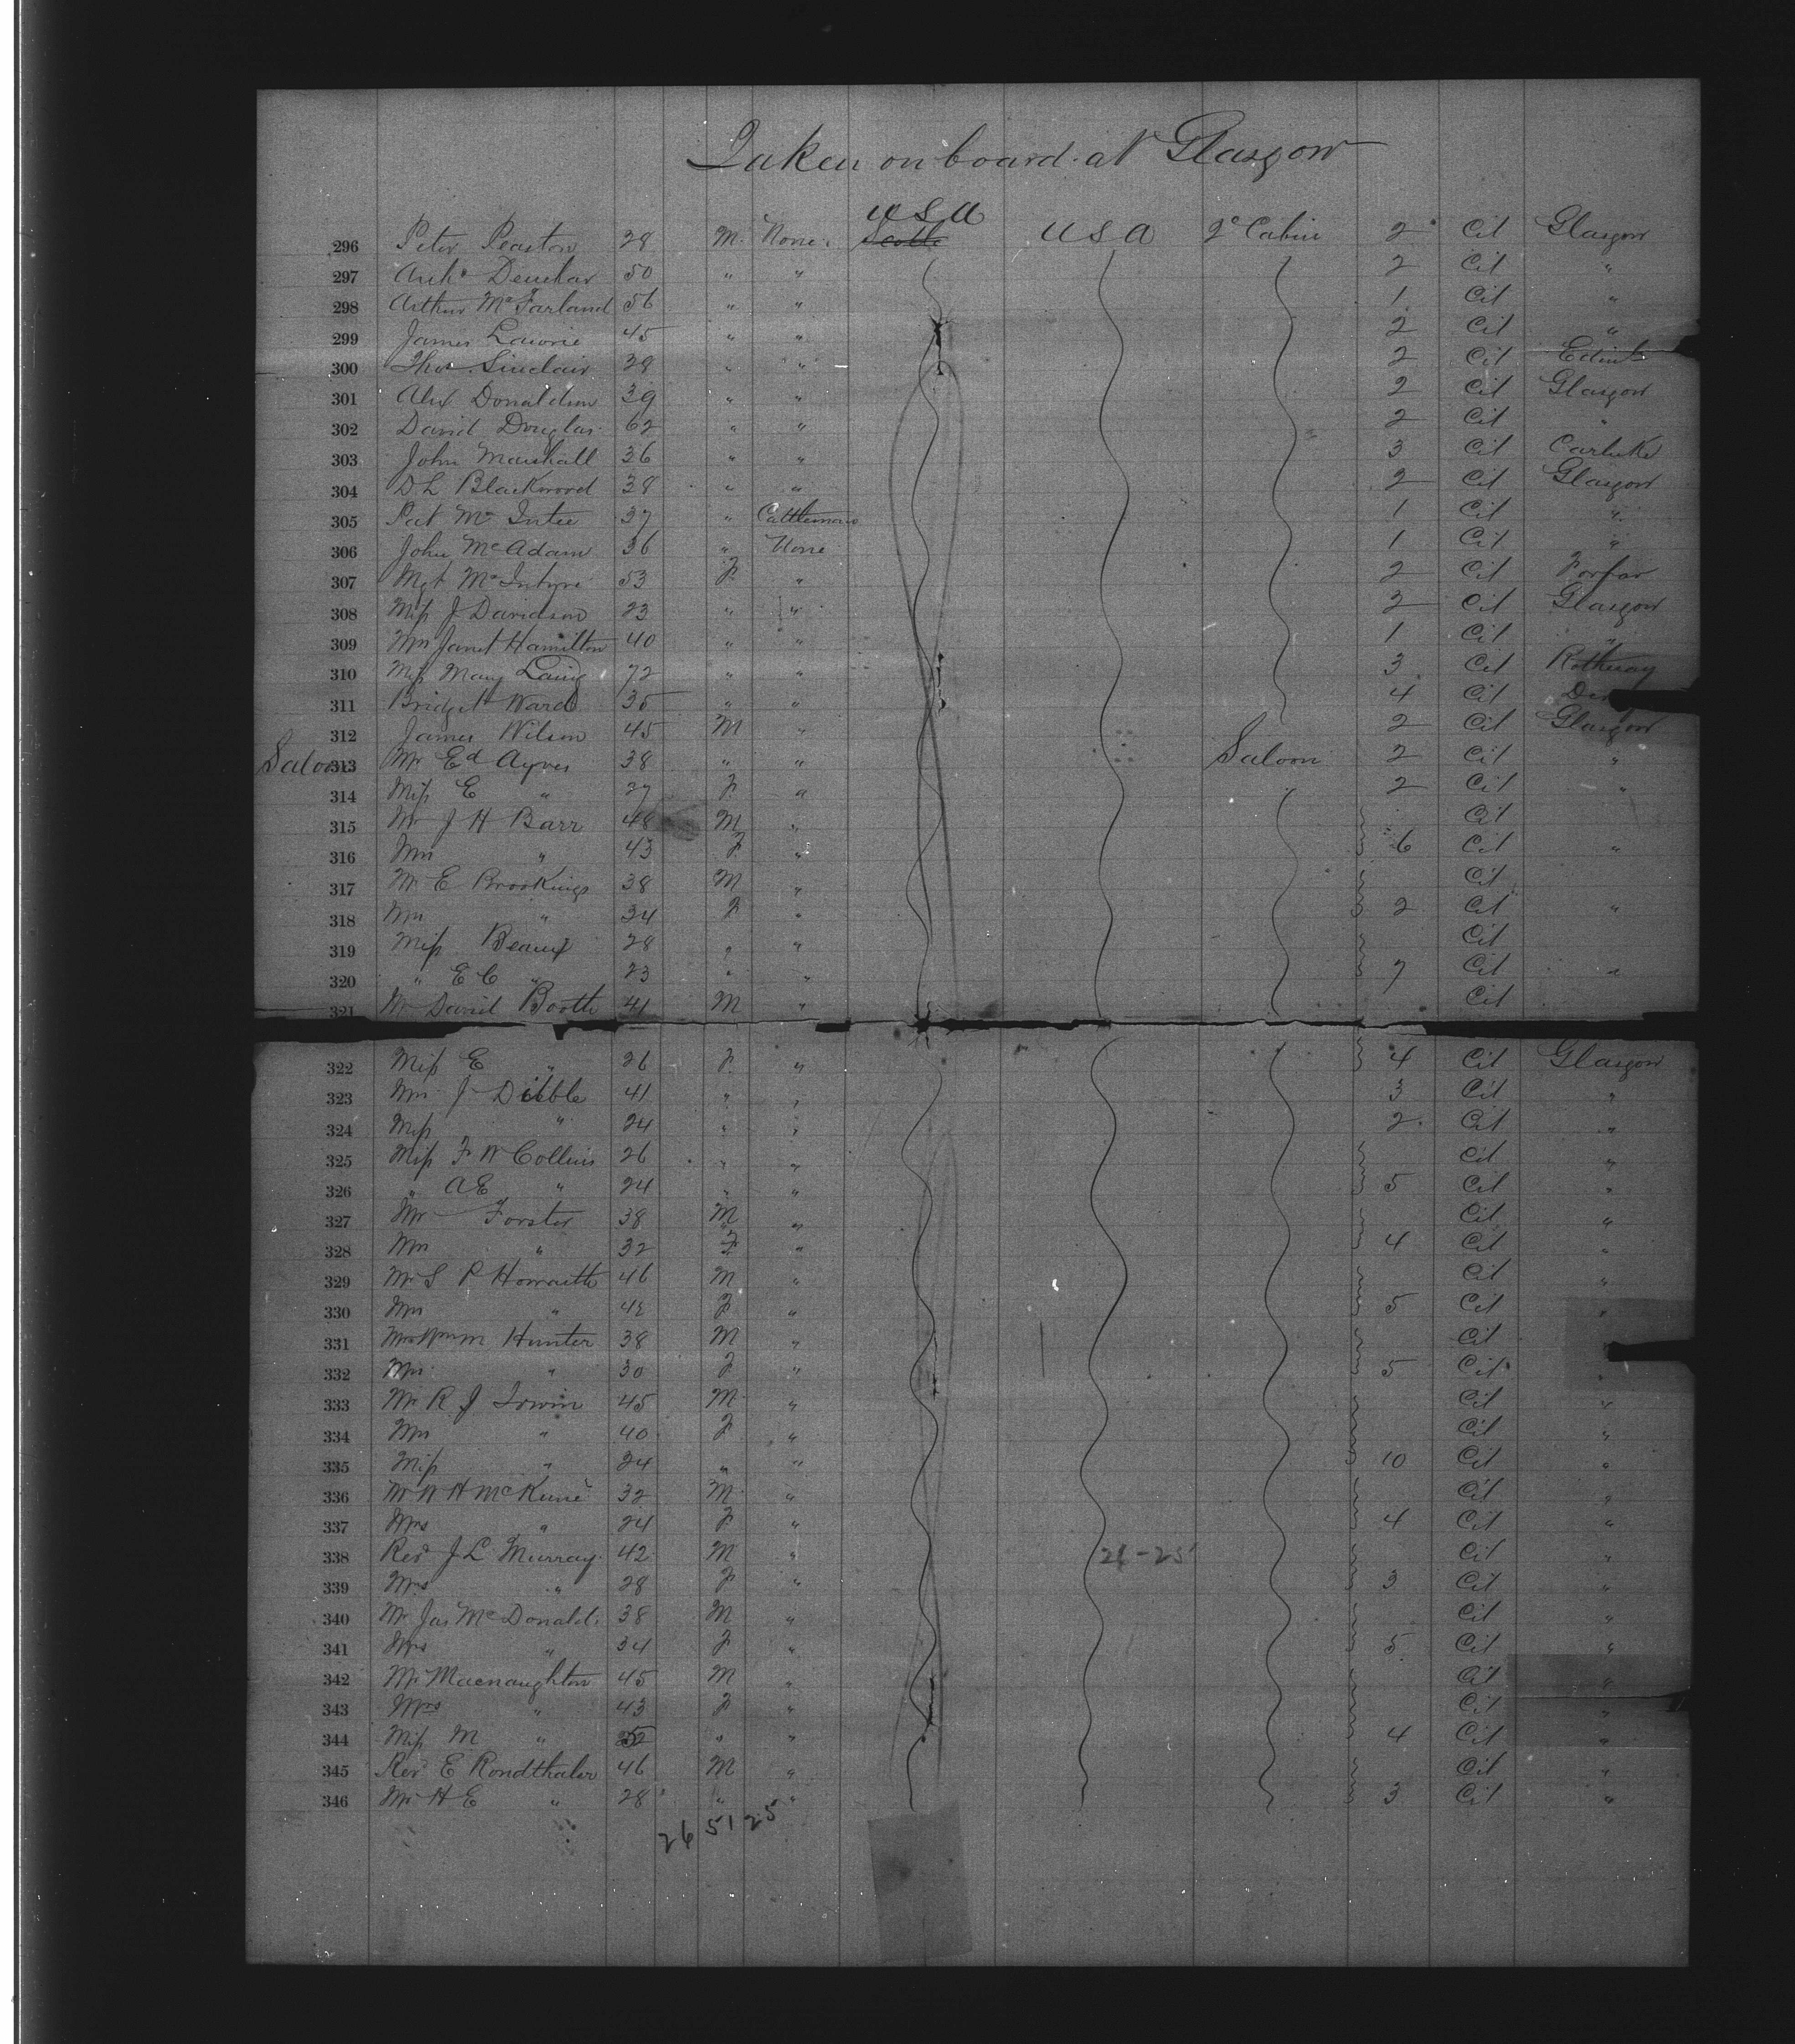 Taken on board at Glasgow
USA
296 Peter Peaston 28 M. None. Scotld USA 2° Cabin 2 Cit Glasgow
297 Archd Deuchar 50 " " 2 Cit "
298 Arthur McFarland 56 " " 1 Cit "
299 James Lawrie 45 " " 2 Cit "
300 Thos. Sinclair 28 " " 2 Cit Edinb
301 Alex Donaldson 39 " " 2 Cit Glasgow
302 David Douglas 62 " " 2 Cit "
303 John Marshall 36 " " 3 Cit Carluke
304 D L Blackwood 38 " " 2 Cit Glasgow
305 Pat Mc Intee 37 " Cattleman 1 Cit "
306 John McAdam 36 " None 1 Cit "
307 Mgt McIntyre 53 F. " 2 Cit Forfar
308 Miss J Davidson 23 " " 2 Cit Glasgow
309 Mrs Janet Hamilton 40 " " 1 Cit "
310 Miss Mary Laing 72 " " 3 Cit Rothesay
311 Bridget Ward 35 " " 4 Cit
312 James Wilson 45 M " 2 Cit Glasgow
Saloon 313 Mr Ed Ayres 38 " " Saloon 2 Cit "
314 Miss E " 27 F. " 2 Cit "
315 Mr J H Barr 48 M " Cit
316 Mrs " 43 F. " 6 Cit "
317 Mr E Brookings 38 M " Cit
318 Mrs " 34 F " 2 Cit "
319 Miss Beaux 28 " " Cit
320 " E C " 23 " " 7 Cit "
321 Mr David Booth 41 M " Cit
322 Miss E " 26 F. " 4 Cit Glasgow
323 Mrs J Dibble 41 " " 3 Cit "
324 Miss " 24 " " 2 Cit "
325 Miss F W Collins 26 " " Cit "
326 " A E " 24 " " 5 Cit "
327 Mr Forster 38 M " Cit "
328 Mrs " 32 F " 4 Cit "
329 Mr S P Howarth 46 M " Cit "
330 Mrs " 42 F " 5 Cit "
331 Hunter 38 M " Cit
332 Mrs " 30 F " 5 Cit "
333 Mr R J Irwin 45 M " Cit "
334 Mrs " 40 F " Cit "
335 Miss " 24 " " 10 Cit "
336 Mr W H McKune 32 M " Cit "
337 Mrs " 24 F " 4 Cit "
338 Revd J L Murray 42 M " 26-25 Cit "
339 Mrs " 28 F " 3 Cit "
340 Mr Jas McDonald. 38 M " Cit "
341 Mrs " 34 F " 5 Cit "
342 Mr Macnaughton 45 M " Cit "
343 Mrs " 43 F " Cit "
344 Miss M " " " 4 Cit "
345 Revd E Rondthaler 46 M " Cit "
346 Mr H E " 28 " " 3 Cit "
26 51 25